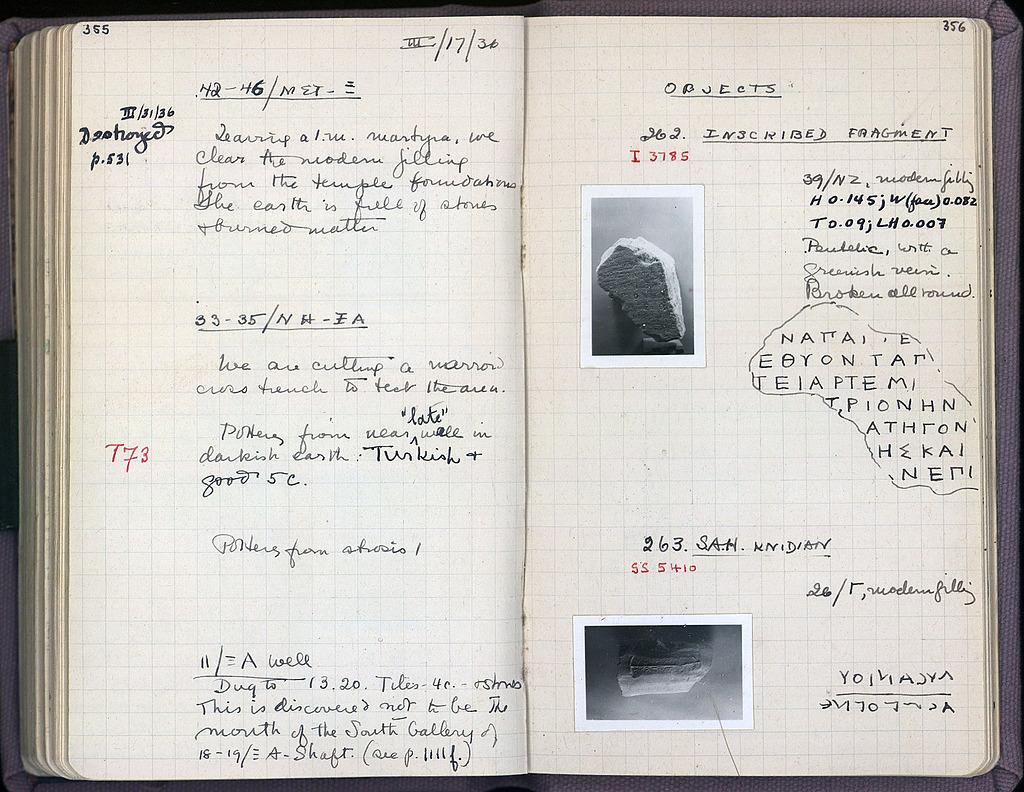 355
III/17/36
42-46/ΜΣΤ-Ξ
III/31/36
Destroyed
p.531
Leaving a 1.m. martyra, we
clear the modern filling
from the temple foundations
The earth is full of stones
+ burned matter
33-35/ΝΗ-ΞΑ
We are cutting a narrow
cross trench to test the area.
"late"
Pottery from near wall in
darkish earth: Turkish +
good 5 C.
T73
Pottery from strosis 1
11/ΞΑ well
Dug to 13.20. Tiles-4c.-
This is discovered not to be the
mouth of the South Gallery of
18-19/ΞΑ-Shaft. (see p. 1111f.)
356
OBJECTS
262. INSCRIBED FRAGMENT
I 3785
39/ΝΖ, modern filling
H 0.145; W (face) 0.082
T 0.09; LH 0.007
Pentelic, with a
greenish vein.
Broken all round.
ΝΑΠΑΙ . Ε
ΕΘΥΟΝ ΤΑΓ
ΤΕΙΑΡΤΕΜΙ
ΤΡΙΟΝΗΝ
ΑΤΗΓΟΝ
ΗΣΚΑΙ
ΝΕΠΙ
263. S.A.H. KNIDIAN
SS 5410
26/Γ, modern filling